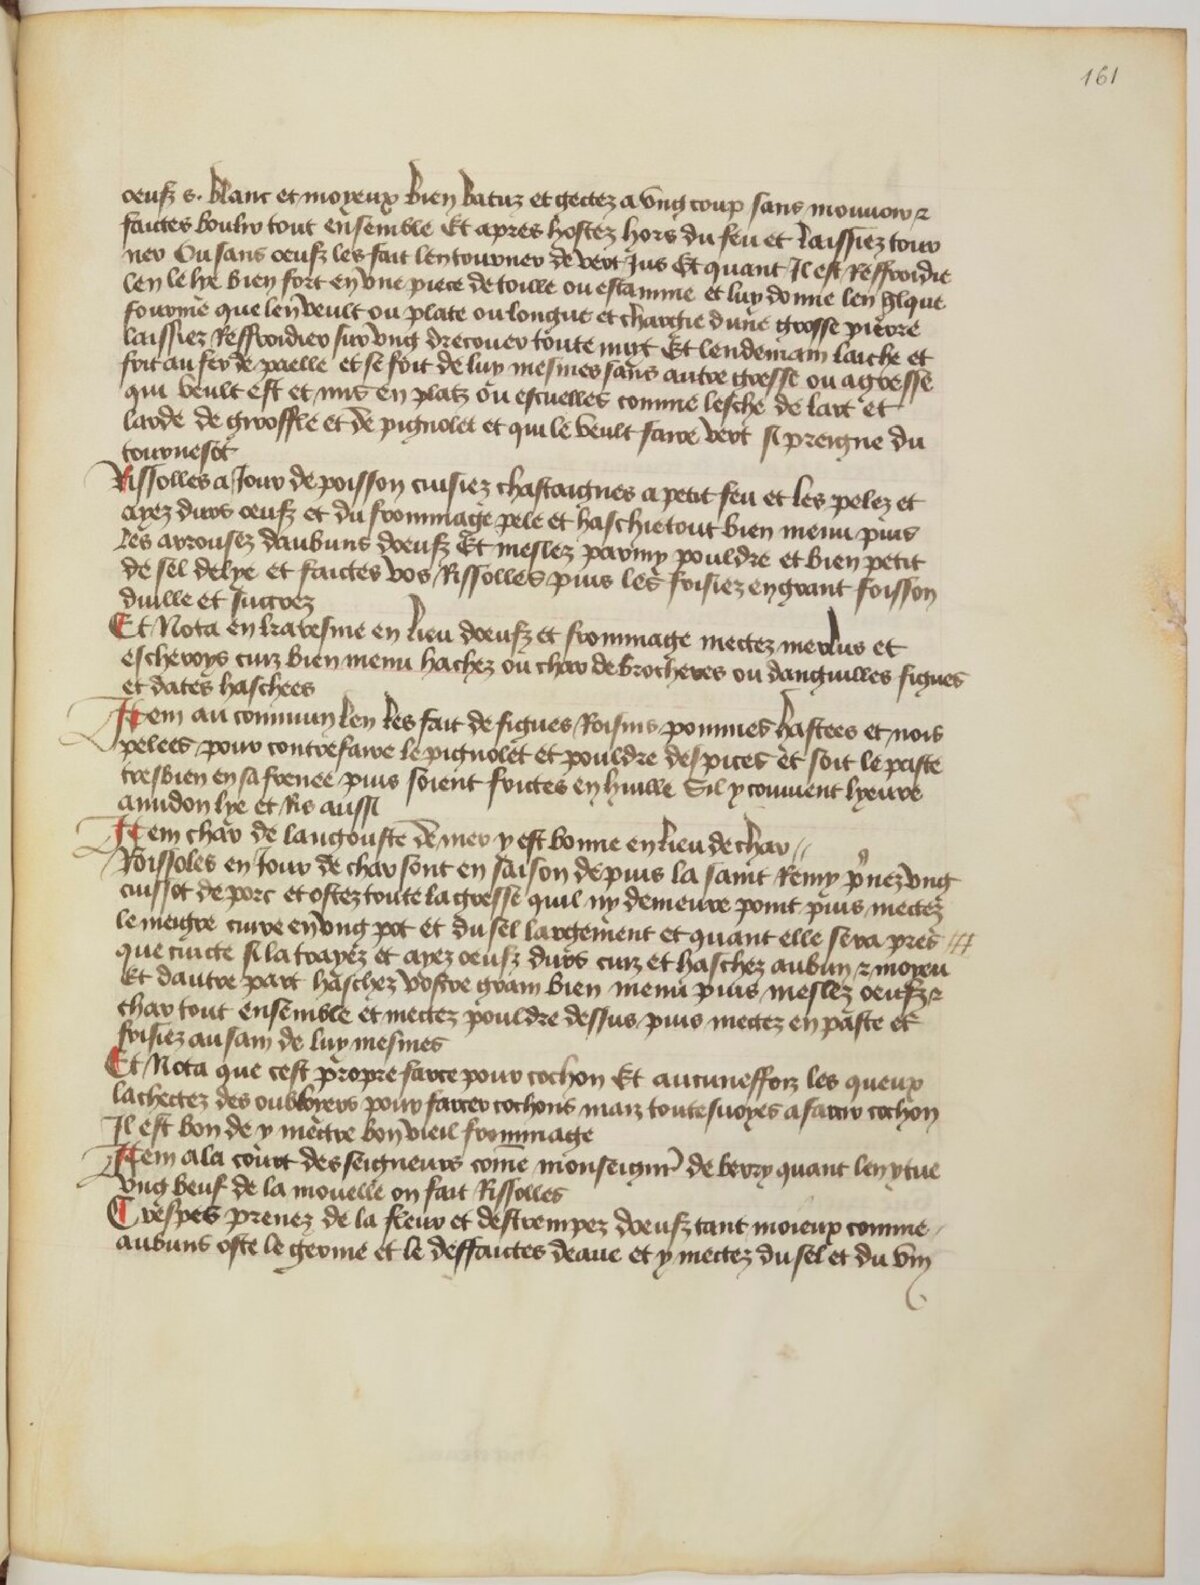 161
oeufz s. blanc et moyeux bien batuz et gectez a ung coup sans mouuoir ⁊
faictes boulir tout ensemble Et apres hostez hors du feu et laissiez tour
ner Ou sans oeufz les fait len tourner de vert Jus Et quant Il est Reffroidie
len le lye bien fort en une piece de toille ou estamine et luy donne len q̄lque
fourme que len veult ou plate ou longue et chargie dune grosse pierre
laissiez Reffroidier sur ung drecouer toute nuyt Et lendemain laiche et
frit au fer de paelle et se frit de luy mesmes sans autre gresse ou a gresse
qui veult est et mis en platz ou escuelles comme lesche de lart et
larde de grooffle et de pignolet et qui le veult faire vert si preigne du
tournesot
Rissolles a Jour de poisson cuisiez chastaignes a petit feu et les pelez et
ayez durs oeufz et du frommage pele et haschie tout bien menu puis
les arrousez daubuns doeufz Et meslez parmy pouldre et bien petit
de sel delye et faictes vos Rissolles puis les frisiez en grant foisson
duille et sucrez
Et Nota en karesme en lieu doeufz et frommage mectez merlus et
escheroys cuiz bien menu hachez ou char de brocheres ou danguilles figues
et dates haschees
Item au commun len les fait de figues Roisins pommes hastees et nois
pelees pour contrefaire le pignolet et pouldre despices et soit le paste
tresbien ensafrenee puis soient frictes en huille Sil y conuient lyeure
amidon lye et Ris aussi
Item char de langouste de mer y est bonne en lieu de char //
Roissoles en Jour de char sont en saison depuis la saint Remy p̄nez ung
cuissot de porc et ostez toute la gresse quil ny demeure point puis mectez
le meigre cuire en ung pot et du sel largement et quant elle sera pres
que cuicte si la trayez et ayez oeufz durs cuiz et haschez aubun ⁊ moyeu
Et dautre part haschez vostre grain bien menu puis meslez oeufz ⁊
char tout ensemble et mectez pouldre dessus puis mectez en paste et
frisiez au sain de luy mesmes
Et Nota que cest propre farce pour cochon Et aucuneffoiz les queux
lachectez des oubloyers pour farcer cochons maiz toutesuoyes a farcir cochon
Il est bon de y mectre bon vieil frommage
Item a la court des seigneurs com̄e monseignr̄ de berry quant len y tue
ung beuf de la mouelle on fait Rissolles
Crespes prenez de la fleur et destrempez doeufz tant moieux comme
aubuns oste le germe et le deffaictes deaue et y mectez du sel et du vin